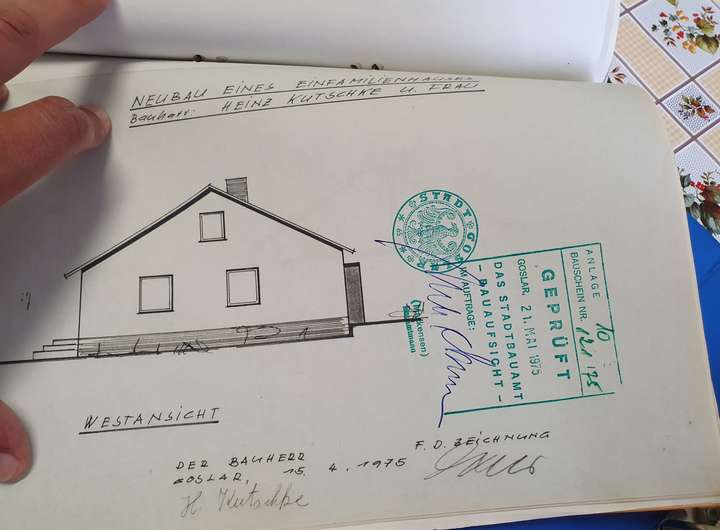 NEUBAU EINES EINFAMILIENHAUSES
Bauherr: HEINZ KUTSCHKE U. FRAU
STADT GOSLAR
ANLAGE 10
BAUSCHEIN NR. 121/75
GEPRÜFT
GOSLAR, 21. MAI 1975
DAS STADTBAUAMT
- BAUAUFSICHT -
IM AUFTRAGE:
WESTANSICHT
DER BAUHERR
GOSLAR, 15. 4. 1975
H. Kutschke
F. D. ZEICHNUNG